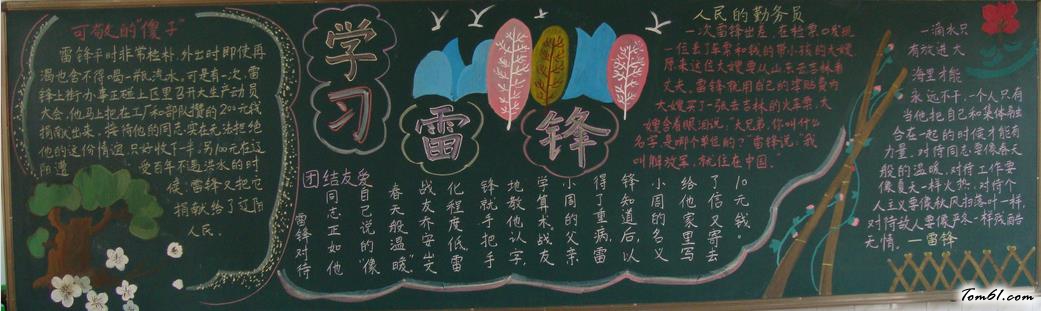 可敬的“傻子”
雷锋平时非常检朴，外出时即使再
渴也舍不得喝一瓶汽水，可是有一次，雷
锋上街办事正碰上区里召开大生产动员
大会，他马上把在工厂和部队攒的200元钱
捐献出来，接待他的同志实在无法拒绝
他的这份情谊，只好收下一半。另100元在辽
阳遭受百年不遇洪水的时
候，雷锋又把它
捐献给了辽阳
人民。
学习
雷锋
团结友爱
雷锋对待
同志正如他
自己说的“像
春天般温暖”。
战友乔安山文
化程度低，雷
锋就手把手
地教他认字，
学算术，战友
小周的父亲
得了重病，雷
锋知道后，以
小周的名义
给他家里写
了信又寄去
10元钱
人民的勤务员
一次雷锋出差，在检票口发现
一位丢了车票和钱的带小孩的大嫂
原来这位大嫂要从山东去吉林看
丈夫，雷锋就用自己的津贴费为
大嫂买了一张去吉林的火车票，大
嫂含着眼泪说：“大兄弟，你叫什么
名字，是哪个单位的？”雷锋说：“我
叫解放军，就住在中国。”
一滴水只
有放进大
海里才能
永远不干，一个人只有
当他把自己和集体融
合在一起的时候才能有
力量。对待同志要像春天
般的温暖，对待工作要
像夏天一样火热，对待个
人主义要像秋风扫落叶一样，
对待敌人要像严冬一样残酷
无情。—雷锋
Tom61.com